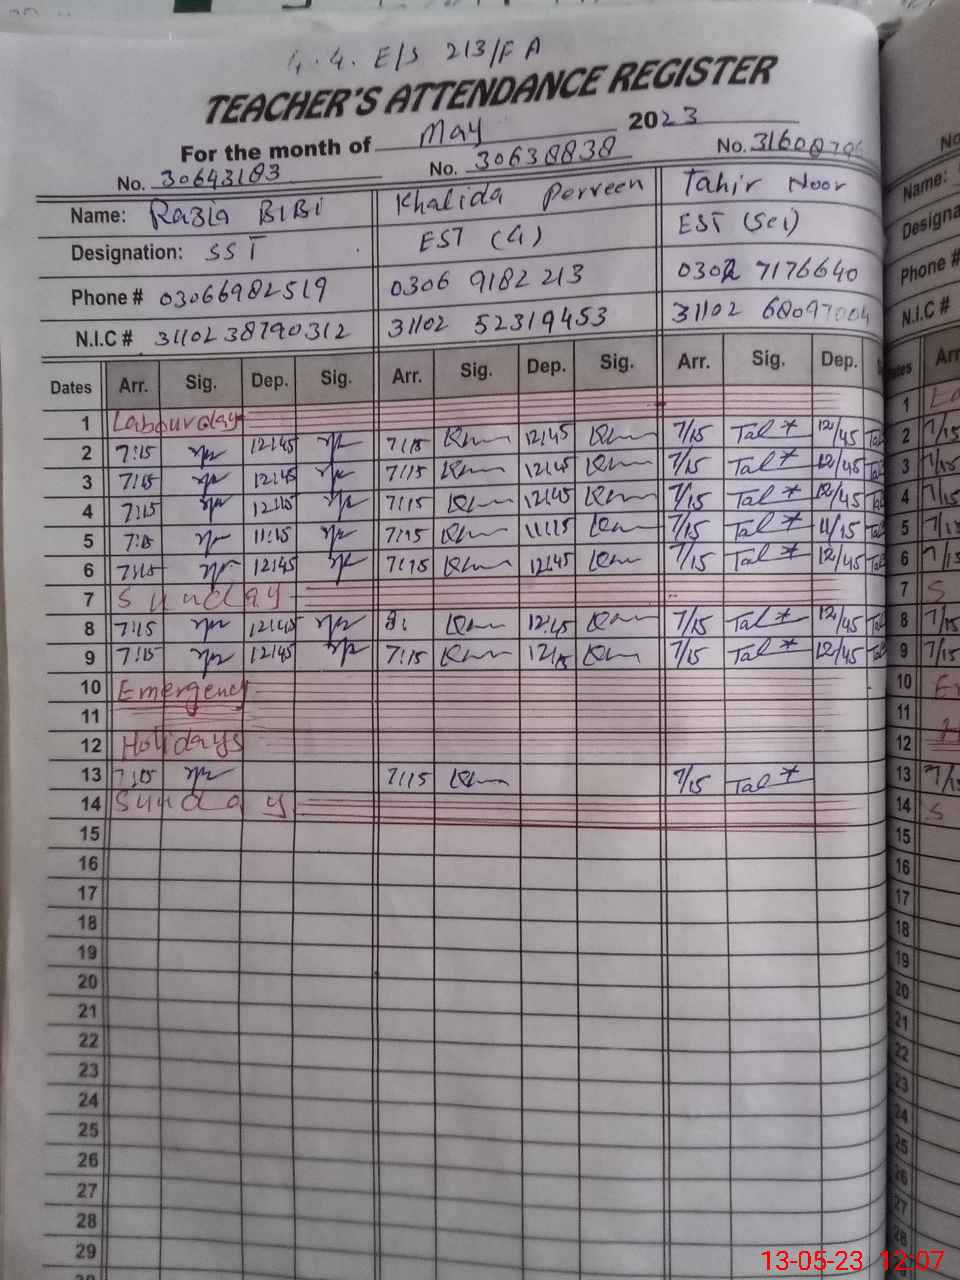 G.G. E/S 213/F A
TEACHER'S ATTENDANCE REGISTER
For the month of May 2023
No. 30643183 No. 30638838 No. 31608796
Name: Razia BiBi Khalida Perveen Tahir Noor
Designation: SST EST (G) EST (Sci)
Phone # 03066982519 0306 9182 213 0302 7176640
N.I.C # 31102 38790312 31102 52319453 31102 68097004
Dates Arr. Sig. Dep. Sig. Arr. Sig. Dep. Sig. Arr. Sig. Dep.
1 Labour day
2 7:15 12:45 7:15 12:45 7/15 12/45
3 7:15 12:45 7:15 12:45 7/15 12/45
4 7:15 12:45 7:15 12:45 7/15 12/45
5 7:15 11:15 7:15 11:15 7/15 11/15
6 7:15 12:45 7:15 12:45 7/15 12/45
7 Sunday
8 7:15 12:45 12:45 7/15 12/45
9 7:15 12:45 7:15 7/15 12/45
10 Emergency
11
12 Holidays
13 7:15 7:15 7/15
14 Sunday
15
16
17
18
19
20
21
22
23
24
25
26
27
28
29
Name:
Phone #
N.I.C #
1
2 7/15
3 7/15
4 7/15
5 7/15
6 7/15
7 S
8 7/15
9 7/15
10
11
12
13
14 S
15
16
17
18
19
20
21
22
23
24
25
26
27
28
13-05-23 12:07